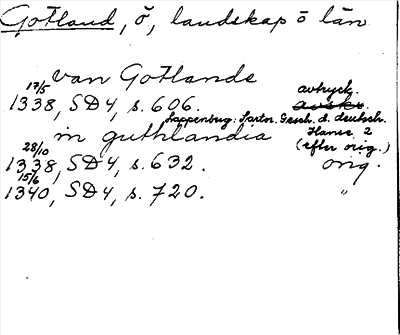 Gotland, ö, landskap o län
van Gotlande
17/5 1338, SD4, s. 606. avtryck. avskr.
Lappenberg: Sartor. Gesch. d. deutsch. Hanse 2 (efter orig.)
in guthlandia
28/10 1338, SD4, s. 632. orig.
15/6 1340, SD4, s. 720. "